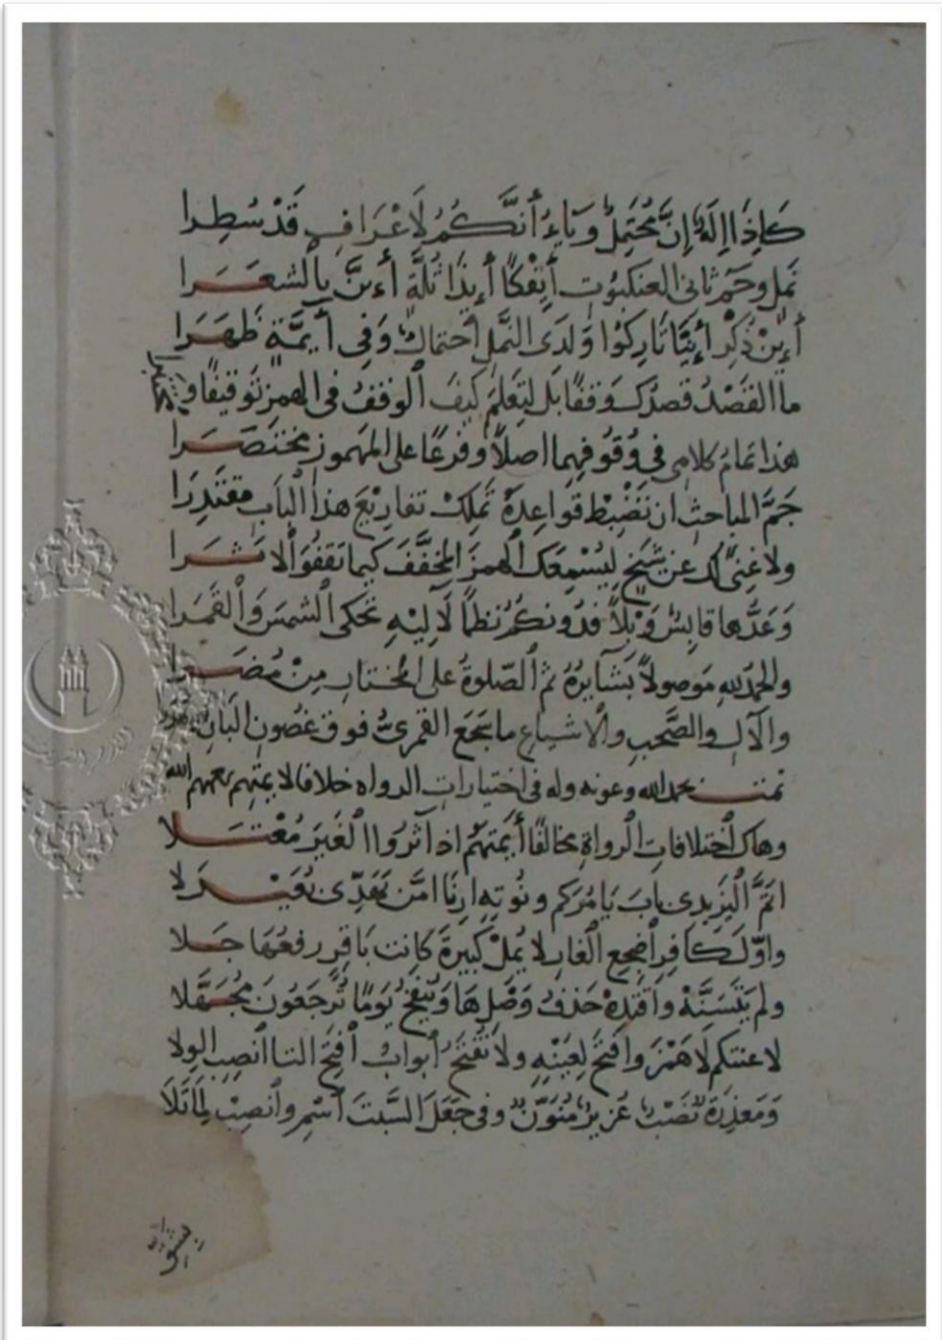 كاذا اإله إن محتمل وياء أنكم لاعراف قد سطرا
نمل وحم ثاني العنكبوت أئفكا أيذا ثلة أءن بالشعرا
أءين ذكر أئنا تاركوا ولدى النمل احتمالك وفي أيمة ظهرا
ما القصد قصدك وقفا بل لتعلم كيف الوقف في الهمز توقيفا و
هذا تمام كلامي في وقوفهما اصلا وفرعا على المهموز مختصرا
جم المباحث ان تضبط قواعده تملك تفاريع هذا الباب مقتدرا
ولا غنى لك عن شيخ ليسمعك الهمز المخفف كيما تقفو الاثرا
وعدها قابش وبلا فدونكم نظما لآليه تحكي الشمس والقمرا
والحمد لله موصولا بشآيره ثم الصلوة على المختار من مضرا
والآل والصحب والاشياع ما سجع القمرى فوق غصون البان
تمت بحمد الله وعونه وله في اختيارات الرواه خلافا لايمتهم رحمهم الله
وهاك اختلافات الرواة مخالفا أيمتهم اذ آثروا الغير معتلا
اتم اليزيدي باب يامركم ونوته ارنا امن يهدى
واول كافر اضجع الغار لا يمل كبيرة كانت باقر رفعها جلا
ولم يتسنه واقتده حذف وصلها وينفخ يوما ترجعون مجهلا
لاعنتكم لا همز وافتح لعينه ولا تفتح أبواب افتح التا انصب الولا
ومعذرة نصب عزير منون وفي جعل السبت اسم وانصب لما تلا